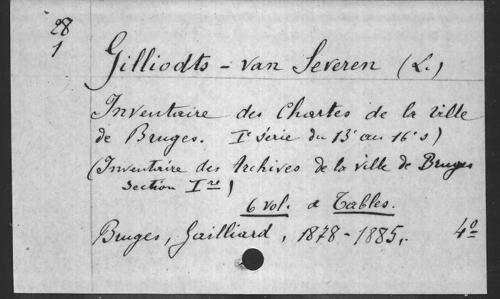 28
1
Gilliodts - van Severen (L.)
Inventaire des Chartes de la ville
de Bruges. Ie série du 13e au 16e s)
(Inventaire des Archives de la ville de Bruges
Section Ire)
6 vol. & Tables.
Bruges, Gailliard, 1878-1885. 4o